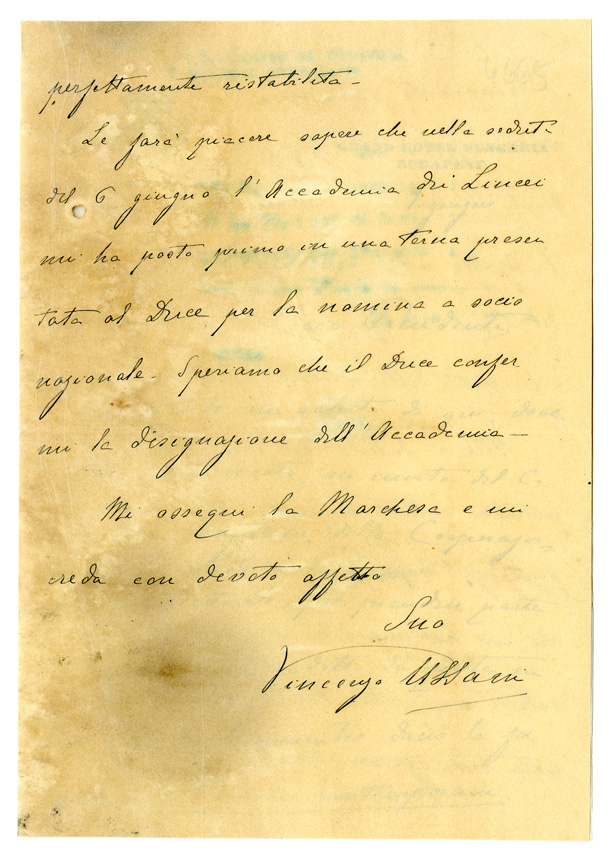 perfettamente ristabilita -
Le farà piacere sapere che nella seduta
del 6 giugno l'Accademia dei Lincei
mi ha posto primo in una terna presen
tata al Duce per la nomina a socio
nazionale - Speriamo che il Duce confer
mi la disegnazione dell'Accademia -
Mi ossequi la Marchesa e mi
creda con devoto affetto
Suo
Vincenzo Ussani
GRAND HOTEL HUNGARIA
BUDAPEST